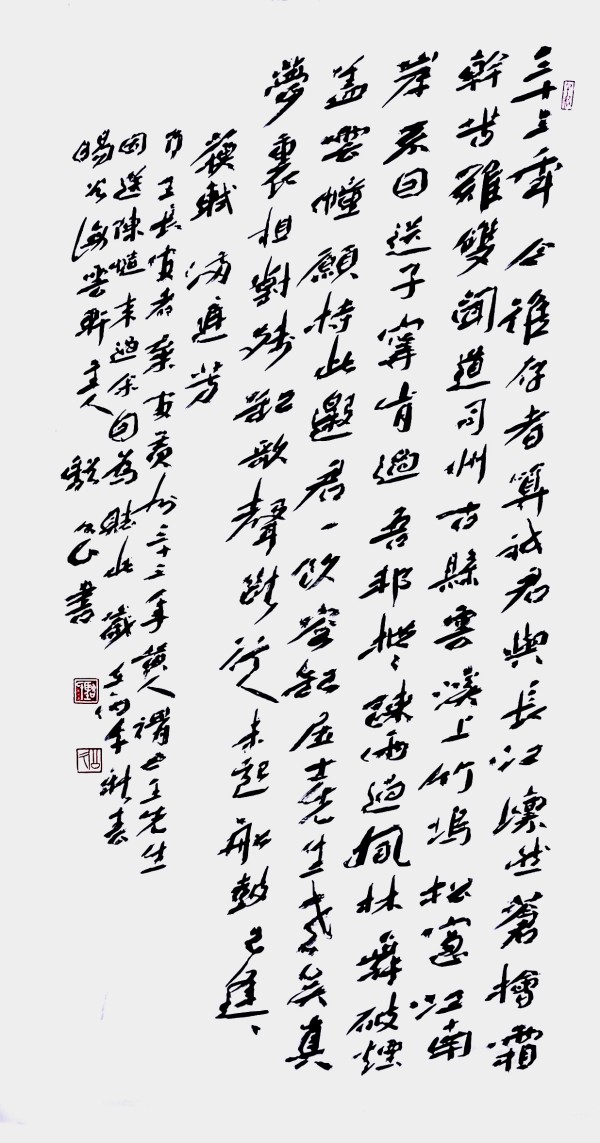 三十三年今誰存者算祇君與長江凜然蒼檜霜
幹苦難雙聞道司州古縣雲溪上竹塢松窗江南
岸不因送子寧肯過吾邦摐〻疎雨過楓林舞破煙
蓋雲幢願持此邀君一飲空缸居士先生老矣真
夢裏相對殘釭歌聲斷行人未起船鼓已逢〻
蘇軾滿庭芳
有王長官者棄官黃州三十三年黃人謂之王先生
因送陳慥來過余因為賦此歲丙午秋書
海雲軒主人公書